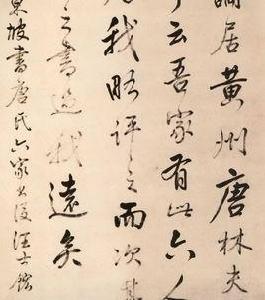 居黃州唐林夫
云吾家有此六人
我略評之而次其
之書過我遠矣
東坡書唐氏六家書後汪士鋐